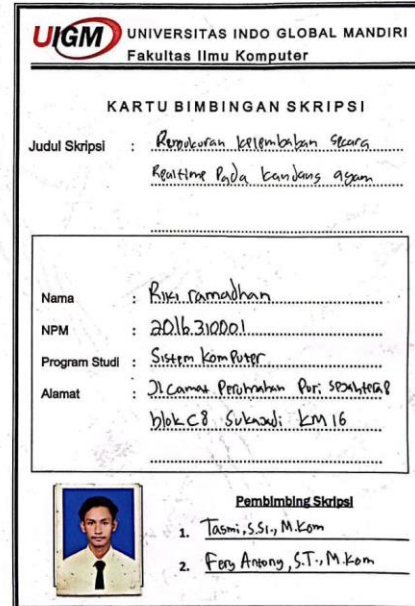 UIGM UNIVERSITAS INDO GLOBAL MANDIRI
Fakultas Ilmu Komputer
KARTU BIMBINGAN SKRIPSI
Judul Skripsi : kelembaban secara
Realtime Pada kandang ayam
Nama : Riki ramadhan
NPM : 2016.310001
Program Studi : Sistem Komputer
Alamat : Jl Camar Perumahan Puri
blok C8 Sukajadi KM 16
Pembimbing Skripsi
1. Tasmi, S.Si., M.Kom
2. Fery Antony, S.T., M.Kom